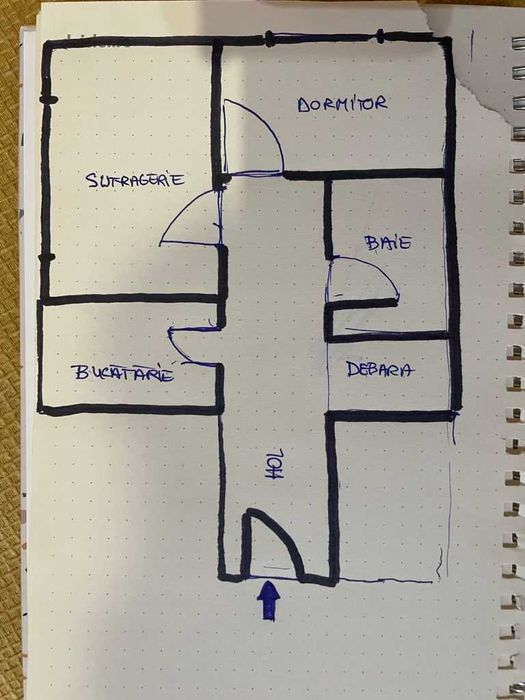 DORMITOR
SUFRAGERIE
BAIE
BUCATARIE
DEBARA
HOL